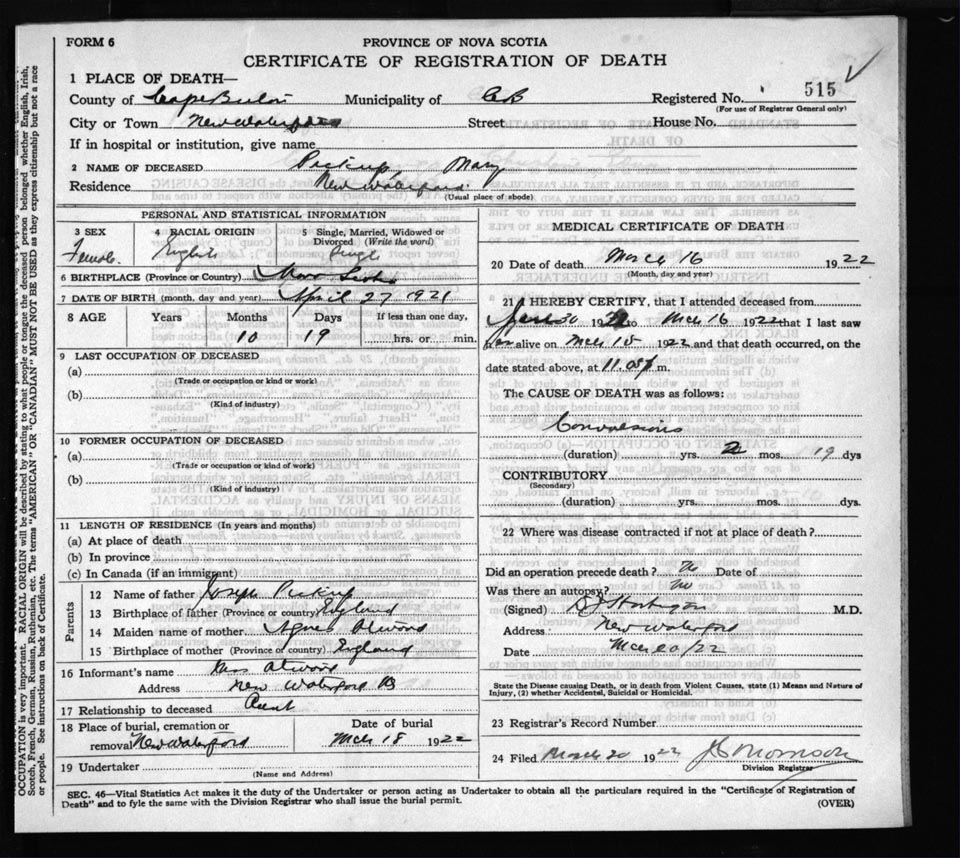 FORM 6
PROVINCE OF NOVA SCOTIA
CERTIFICATE OF REGISTRATION OF DEATH
1 PLACE OF DEATH—
County of Cape Breton Municipality of C B Registered No. 515
(For use of Registrar General only)
City or Town New Waterford Street House No.
If in hospital or institution, give name
2 NAME OF DECEASED Pickup Mary
Residence New Waterford
(Usual place of abode)
PERSONAL AND STATISTICAL INFORMATION
3 SEX 4 RACIAL ORIGIN 5 Single, Married, Widowed or Divorced (Write the word)
Female English Single
6 BIRTHPLACE (Province or Country) Nova Scotia
7 DATE OF BIRTH (month, day and year) April 27 1921
8 AGE Years Months Days If less than one day,
10 19 hrs. or min.
9 LAST OCCUPATION OF DECEASED
(a)
(Trade or occupation or kind or work)
(b)
(Kind of industry)
10 FORMER OCCUPATION OF DECEASED
(a)
(Trade or occupation or kind of work)
(b)
(Kind of industry)
11 LENGTH OF RESIDENCE (In years and months)
(a) At place of death
(b) In province
(c) In Canada (if an immigrant)
Parents
12 Name of father Joseph Pickup
13 Birthplace of father (Province or country) England
14 Maiden name of mother Agnes Atwood
15 Birthplace of mother (Province or country) England
16 Informant's name Atwood
Address New Waterford CB
17 Relationship to deceased Aunt
18 Place of burial, cremation or Date of burial
removal New Waterford Mch 18 1922
19 Undertaker
(Name and Address)
MEDICAL CERTIFICATE OF DEATH
20 Date of death March 16 1922
(Month, day and year)
21 I HEREBY CERTIFY, that I attended deceased from
30 19 22 to Mch 16 1922 that I last saw
her alive on Mch 15 1922 and that death occurred, on the
date stated above, at 11.05 p m.
The CAUSE OF DEATH was as follows:
Convulsions
(duration) yrs. mos. 19 dys
CONTRIBUTORY
(Secondary)
(duration) yrs. mos. dys.
22 Where was disease contracted if not at place of death?
Did an operation precede death? No Date of
Was there an autopsy? No
(Signed) M.D.
Address New Waterford
Date Mch 20/22
State the Disease causing Death, or in death from Violent Causes, state (1) Means and Nature of
Injury, (2) whether Accidental, Suicidal or Homicidal.
23 Registrar's Record Number
24 Filed March 20 1922
Division Registrar
SEC. 46—Vital Statistics Act makes it the duty of the Undertaker or person acting as Undertaker to obtain all the particulars required in the "Certificate of Registration of
Death" and to fyle the same with the Division Registrar who shall issue the burial permit.
(OVER)
OCCUPATION is very important. RACIAL ORIGIN will be described by stating to what people or tongue the deceased person belonged whether English, Irish,
Scotch, French, German, Russian, Ruthenian, etc. The terms "AMERICAN" OR "CANADIAN" MUST NOT BE USED as they express citizenship but not a race
or people. See instructions on back of Certificate.